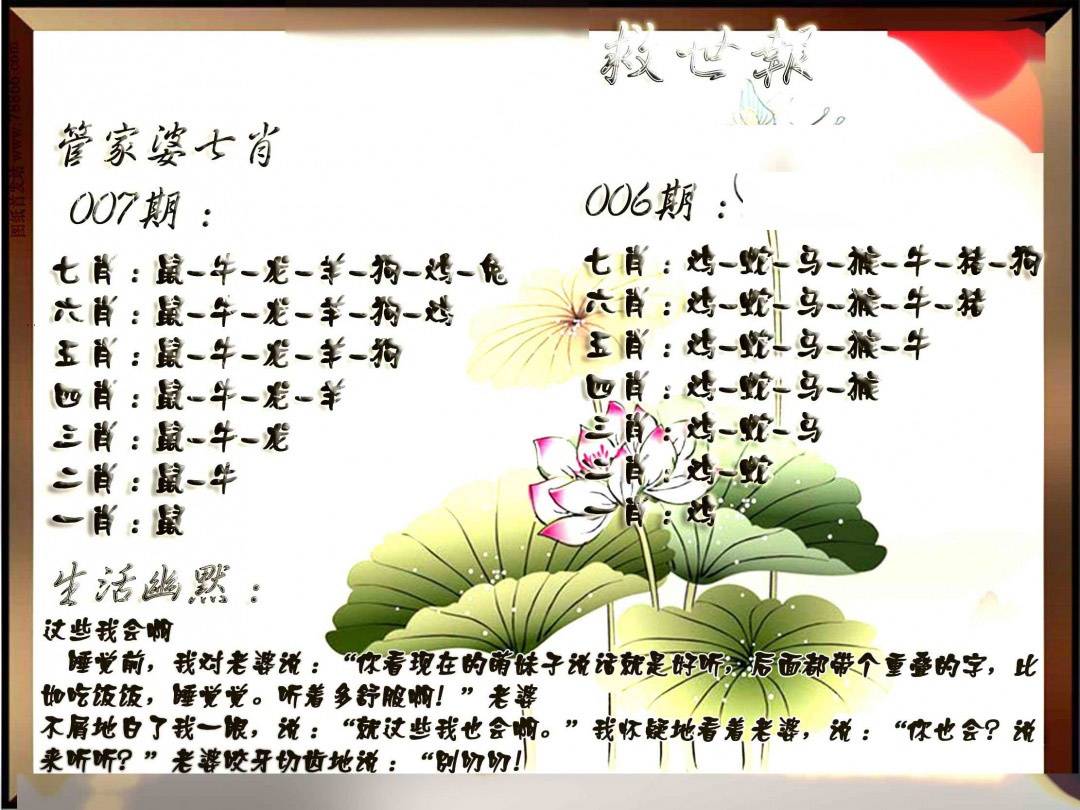 救世報
管家婆七肖
007期：
七肖：鼠-牛-龙-羊-狗-鸡-兔
六肖：鼠-牛-龙-羊-狗-鸡
五肖：鼠-牛-龙-羊-狗
四肖：鼠-牛-龙-羊
三肖：鼠-牛-龙
二肖：鼠-牛
一肖：鼠
006期：
七肖：鸡-蛇-马-猴-牛-猪-狗
六肖：鸡-蛇-马-猴-牛-猪
五肖：鸡-蛇-马-猴-牛
四肖：鸡-蛇-马-猴
三肖：鸡-蛇-马
二肖：鸡-蛇
一肖：鸡
生活幽默：
这些我会啊
睡觉前，我对老婆说：“你看现在的萌妹子说话就是好听，后面都带个重叠的字，比
如吃饭饭，睡觉觉。听着多舒服啊！”老婆
不屑地白了我一眼，说：“就这些我也会啊。”我怀疑地看着老婆，说：“你也会？说
来听听？”老婆咬牙切齿地说：“别叨叨！